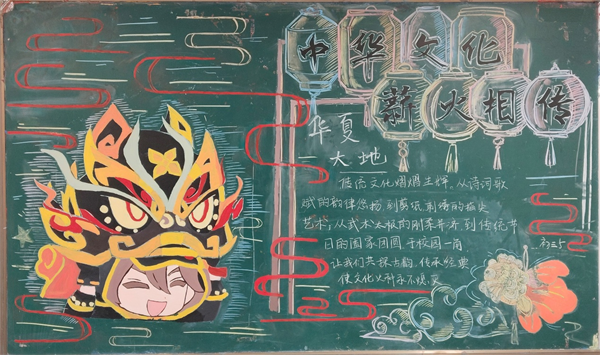 中华文化
薪火相传
华夏
大地
传统文化熠熠生辉,从诗词歌
赋的韵律悠扬,到剪纸刺绣的指尖
艺术;从武术太极的刚柔并济,到传统节
日的阖家团圆,于校园一角
让我们共探古韵,传承经典
使文化火种永不熄灭
初二